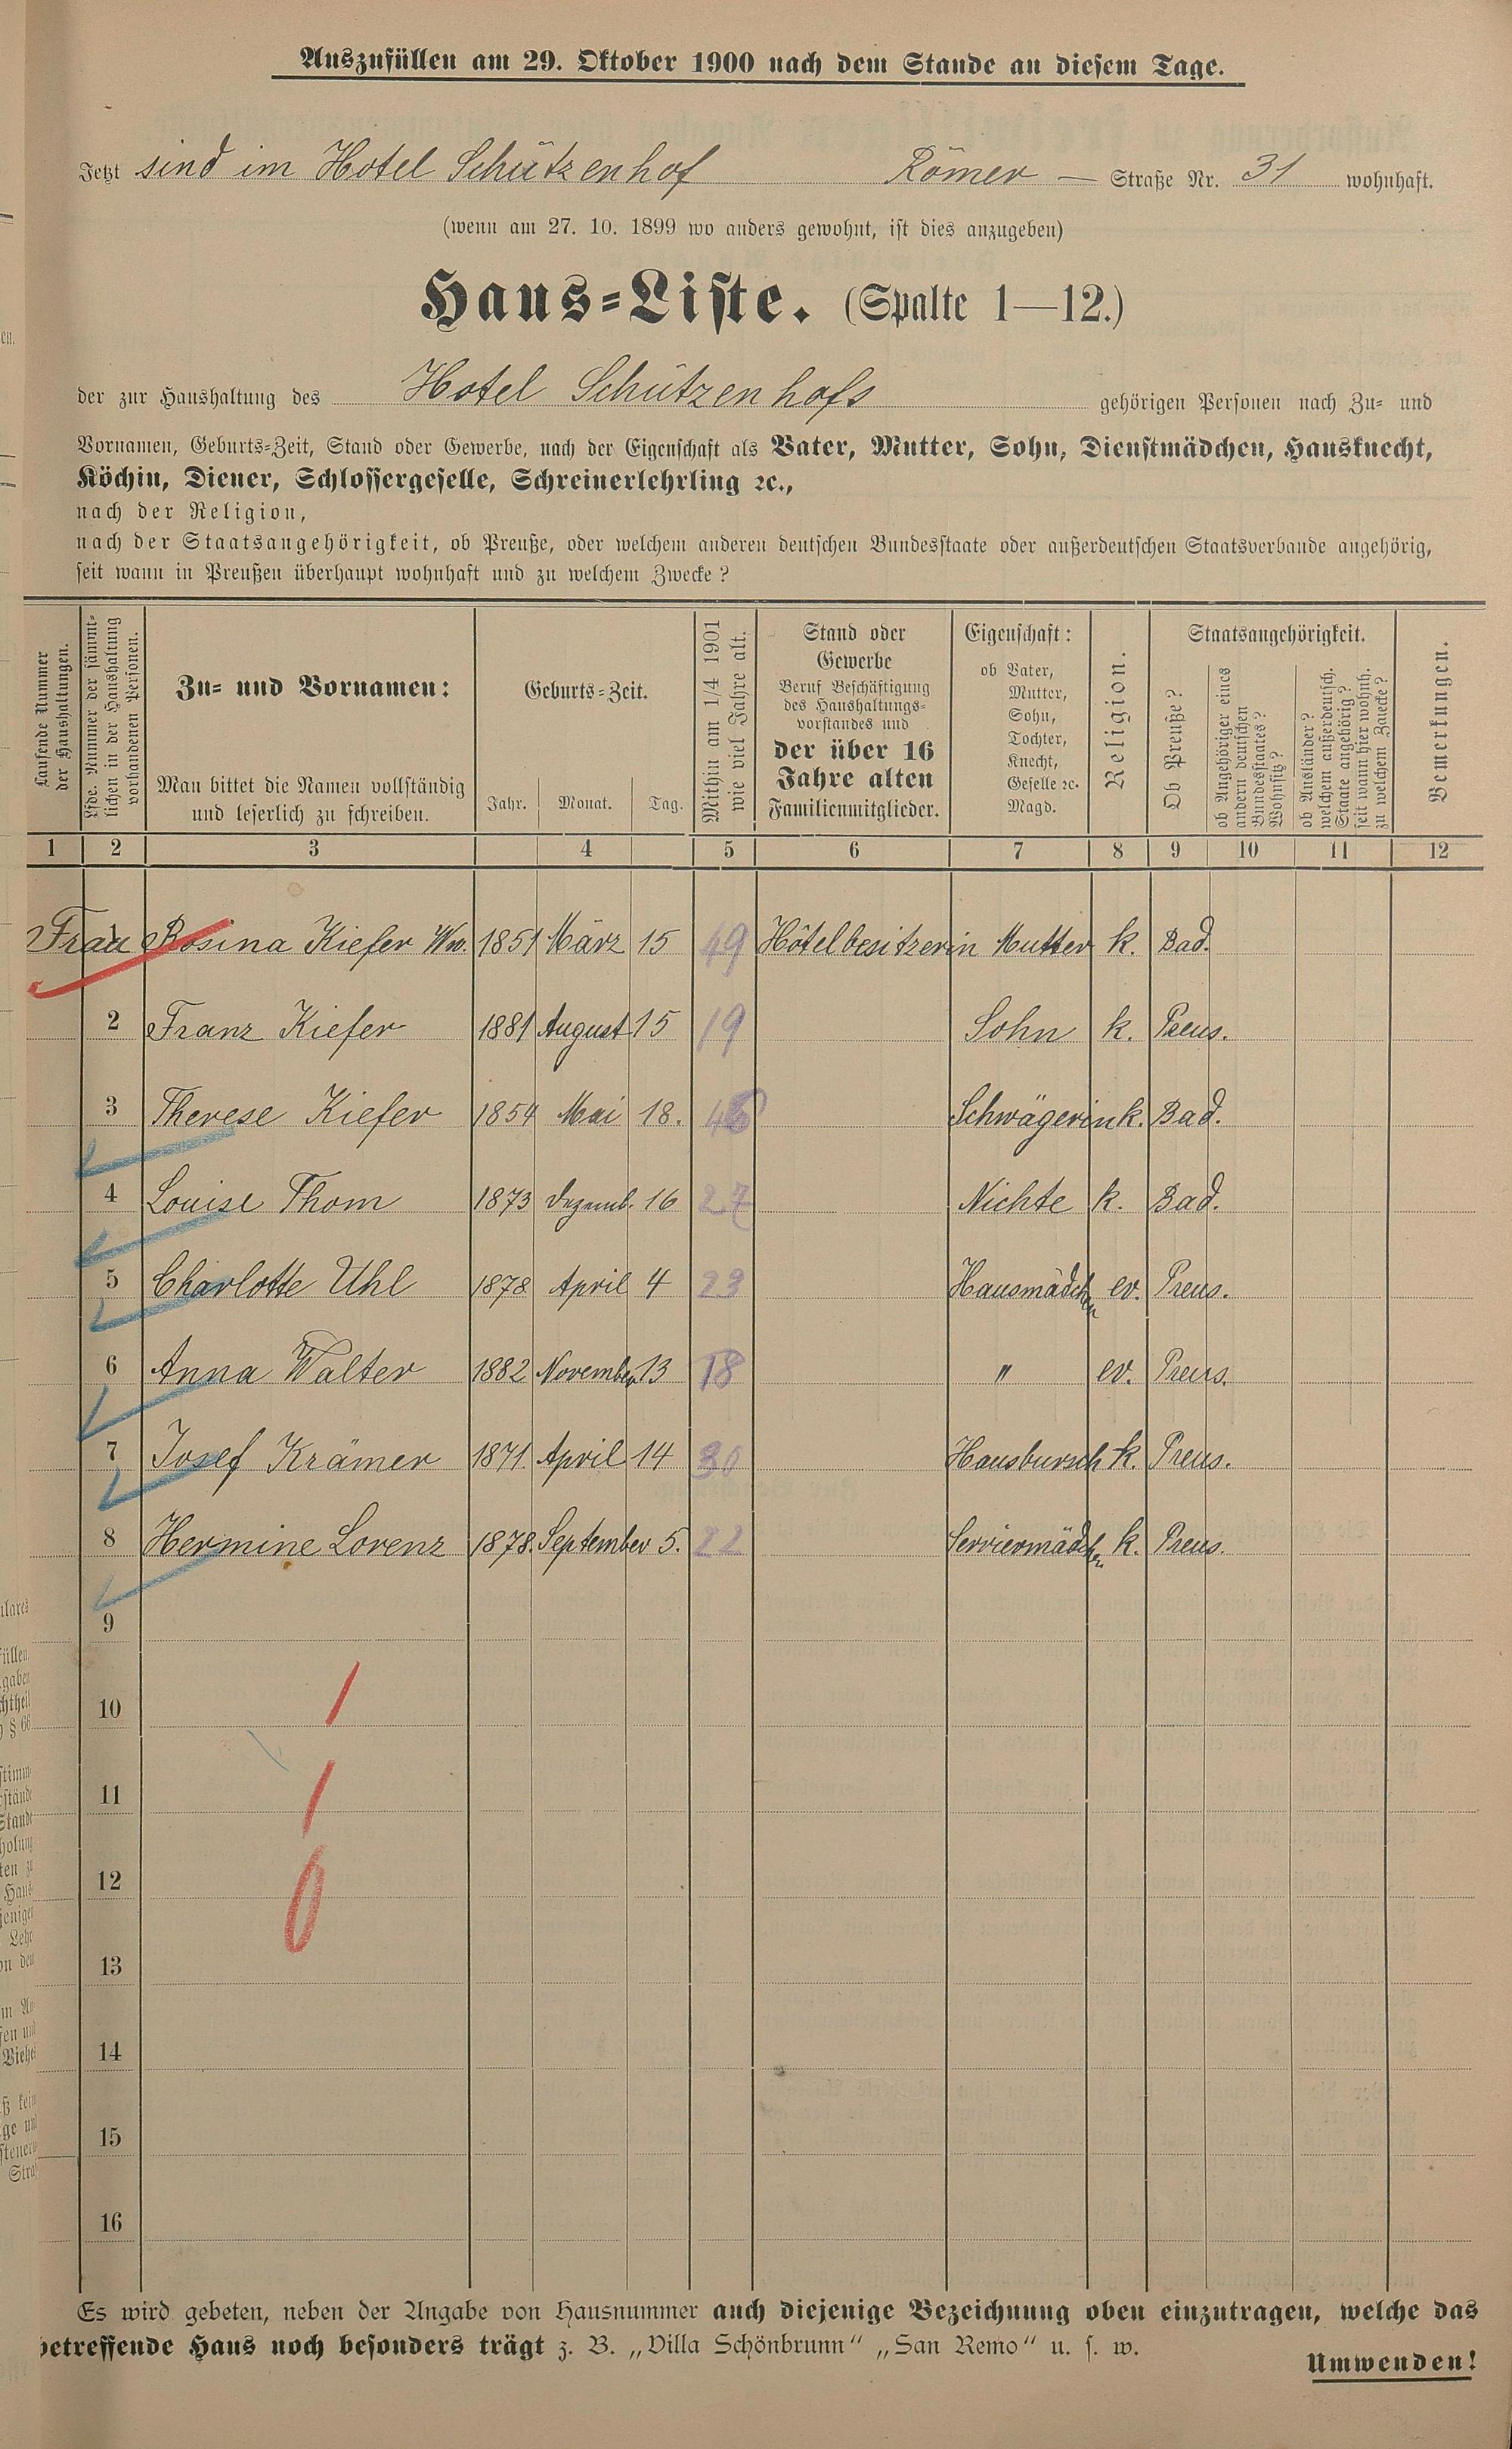 Auszufüllen am 29. Oktober 1900 nach dem Stande an diesem Tage.
Jetzt sind im Hotel Schützenhof Römer — Straße Nr. 31 wohnhaft.
(wenn am 27. 10. 1899 wo anders gewohnt, ist dies anzugeben)
Haus-Liste. (Spalte 1—12.)
der zur Haushaltung des Hotel Schützenhofs gehörigen Personen nach Zu- und
Vornamen, Geburts-Zeit, Stand oder Gewerbe, nach der Eigenschaft als Vater, Mutter, Sohn, Dienstmädchen, Hausknecht,
Köchin, Diener, Schlossergeselle, Schreinerlehrling ꝛc.,
nach der Religion,
nach der Staatsangehörigkeit, ob Preuße, oder welchem anderen deutschen Bundesstaate oder außerdeutschen Staatsverbande angehörig,
seit wann in Preußen überhaupt wohnhaft und zu welchem Zwecke?
Laufende Nummer
der Haushaltungen.
Lfde. Nummer der sämmt-
lichen in der Haushaltung
vorhandenen Personen.
Zu- und Vornamen:
Man bittet die Namen vollständig
und leserlich zu schreiben.
Geburts-Zeit.
Jahr. Monat. Tag.
Mithin am 1/4 1901
wie viel Jahre alt.
Stand oder
Gewerbe
Beruf Beschäftigung
des Haushaltungs-
vorstandes und
der über 16
Jahre alten
Familienmitglieder.
Eigenschaft:
ob Vater,
Mutter,
Sohn,
Tochter,
Knecht,
Geselle ꝛc.
Magd.
Religion.
Staatsangehörigkeit.
Ob Preuße?
ob Angehöriger eines
andern deutschen
Bundesstaates?
Wohnsitz?
ob Ausländer?
welchem außerdeutsch.
Staate angehörig?
seit wann hier wohnh.
zu welchem Zwecke?
Bemerkungen.
1 2 3 4 5 6 7 8 9 10 11 12
Frau Rosina Kiefer Ww. 1851 März 15 49 Hôtelbesitzerin Mutter k. Bad.
2 Franz Kiefer 1881 August 15 19 Sohn k. Preus.
3 Therese Kiefer 1854 Mai 18. Schwägerin k. Bad.
4 Louise Thom 1873 Dezemb. 16 27 Nichte k. Bad.
5 Charlotte Uhl 1878 April 4 23 Hausmädchen ev. Preus.
6 Anna Walter 1882 November 13 18 " ev. Preus.
7 Josef Krämer 1871. April 14 30 Hausbursch k. Preus.
8 Hermine Lorenz 1878. September 5. 22 Serviermädchen k. Preus.
9
10
11
12
13
14
15
16
Es wird gebeten, neben der Angabe von Hausnummer auch diejenige Bezeichnung oben einzutragen, welche das
betreffende Haus noch besonders trägt z. B. „Villa Schönbrunn“ „San Remo“ u. s. w.
Umwenden!